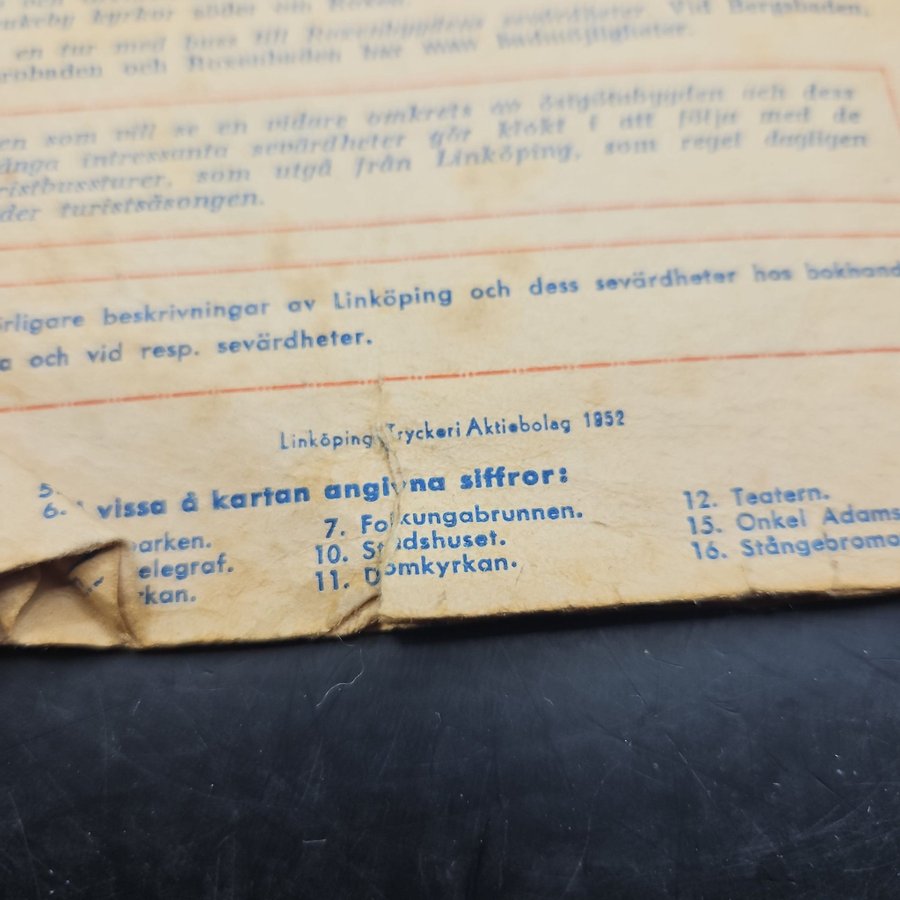 en tur med buss till Roxenbygdens sevärdheter. Vid Bergsbaden,
och Roxenbaden har man badmöjligheter.
en som vill se en vidare omkrets av östgötabygden och dess
ånga intressanta sevärdheter gör klokt i att följa med de
ristbussturer, som utgå från Linköping, som regel dagligen
der turistsäsongen.
rligare beskrivningar av Linköping och dess sevärdheter hos bokhand
a och vid resp. sevärdheter.
Linköping Tryckeri Aktiebolag 1952
vissa å kartan angivna siffror:
5.
6.
arken.
elegraf.
rkan.
7. Folkungabrunnen.
10. Stadshuset.
11. Domkyrkan.
12. Teatern.
15. Onkel Adams
16. Stångebromo